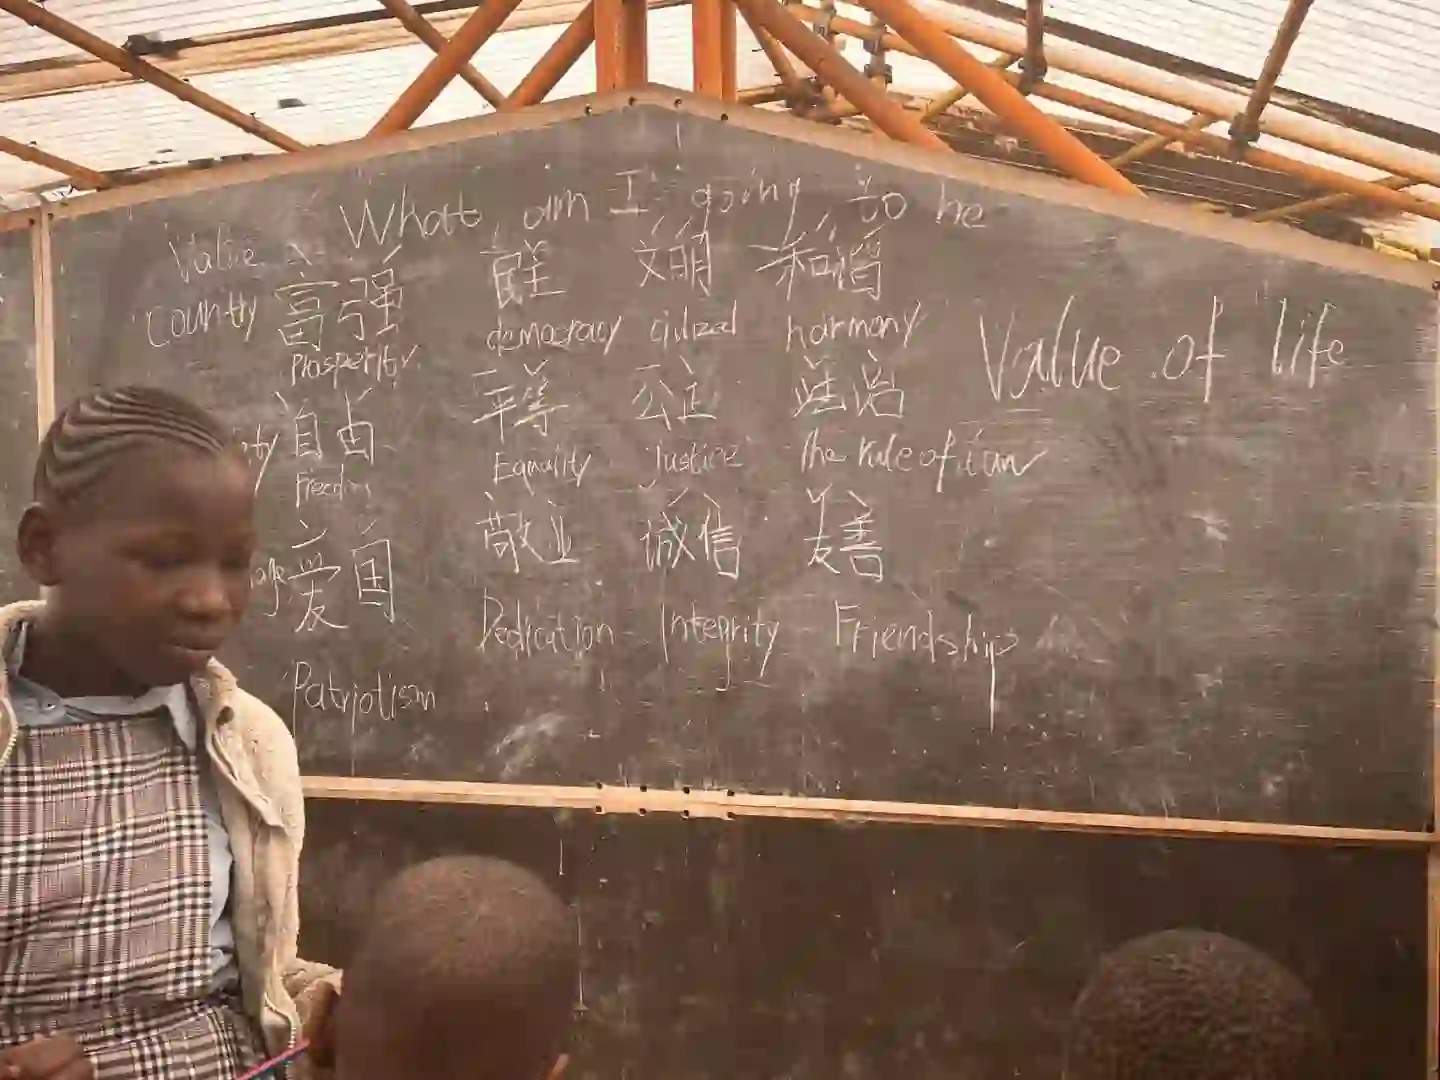 What am I going to be
Value
Country 富强 民主 文明 和谐
Prosperity democracy civilized harmony
Value of life
自由 平等 公正 法治
Freedom Equality Justice the rule of law
爱国 敬业 诚信 友善
Patriotism Dedication Integrity Friendship